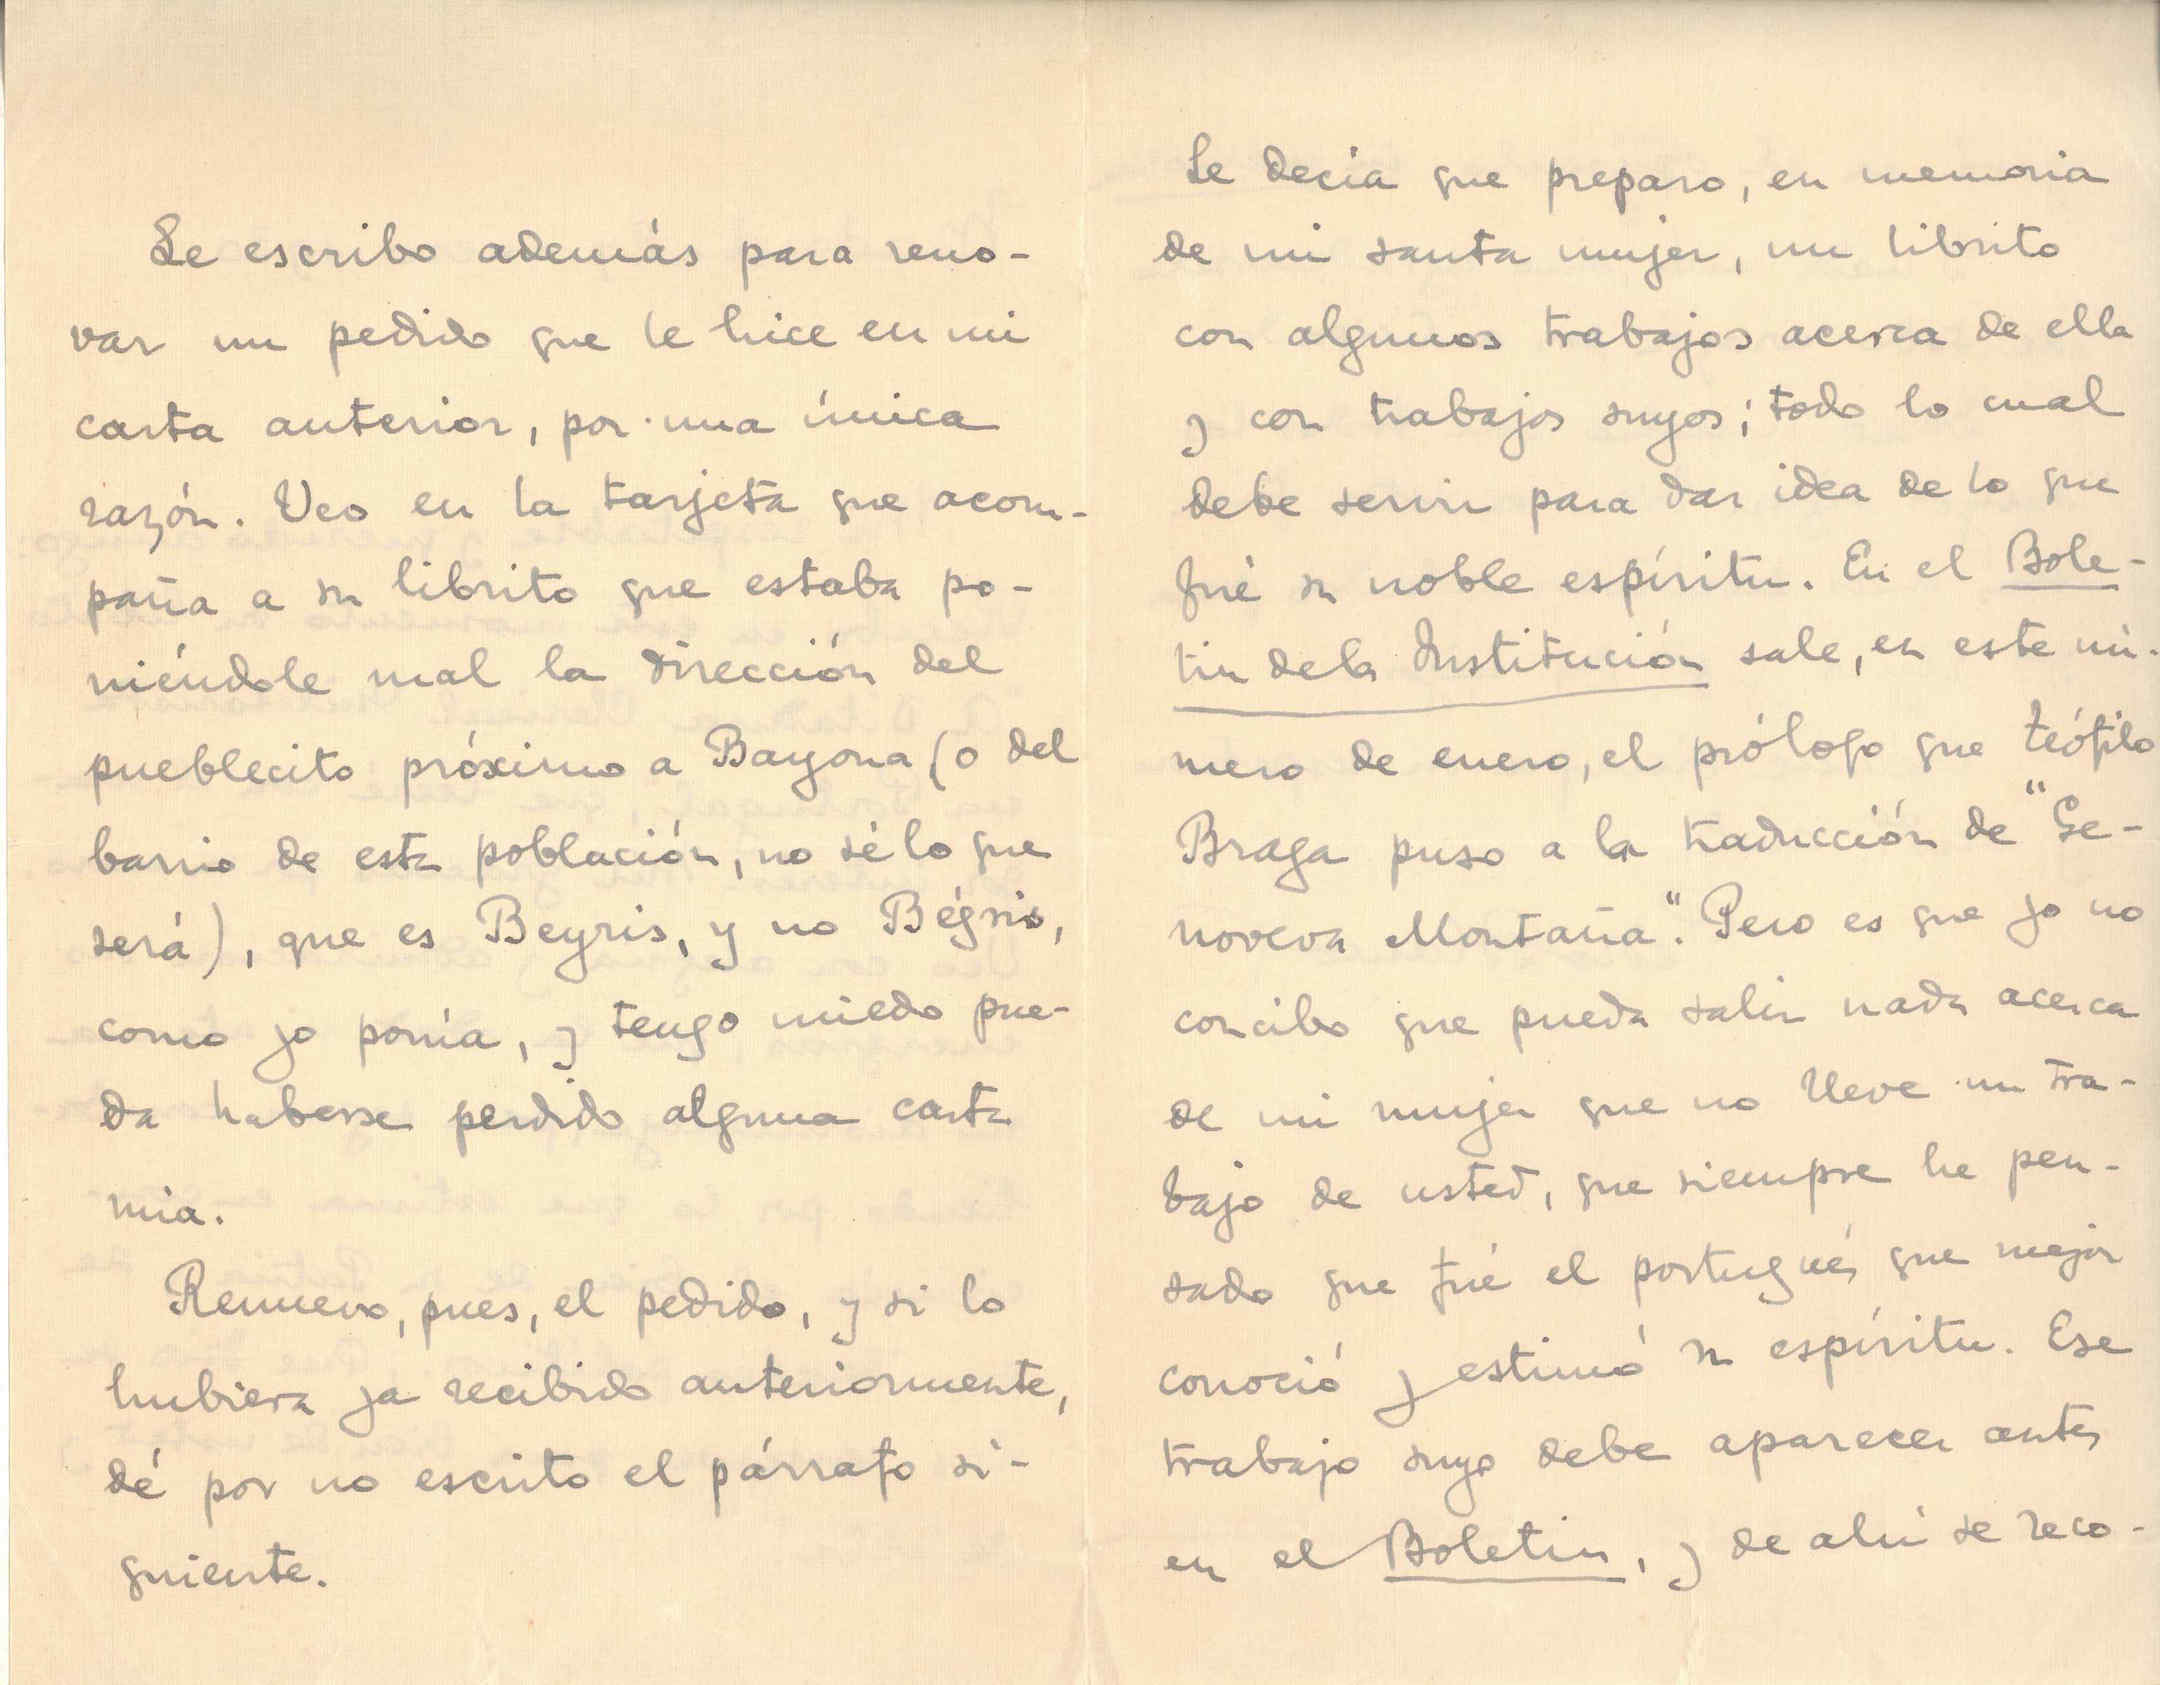 Le escribo además para reno-
var un pedido que le hice en mi
carta anterior, por una única
razón. Veo en la tarjeta que acom-
paña a su librito que estaba po-
niéndole mal la dirección del
pueblecito próximo a Bayona (o del
barrio de esta población, no sé lo que
será), que es Beyris, y no Bégris,
como yo ponía, y tengo miedo pue-
da haberse perdido alguna carta
mía.
Renuevo, pues, el pedido, y si lo
hubiera ya recibido anteriormente,
dé por no escrito el párrafo si-
guiente.
Le decía que preparo, en memoria
de mi santa mujer, un librito
con algunos trabajos acerca de ella
y con trabajos suyos; todo lo cual
debe servir para dar idea de lo que
fué su noble espíritu. En el Bole-
tin de la Institución sale, en este nú-
mero de enero, el prólogo que Teófilo
Braga puso a la traducción de "Ge-
noveva Montaña". Pero es que yo no
concibo que pueda salir nada acerca
de mi mujer que no lleve un tra-
bajo de usted, que siempre he pen-
sado que fué el portugués que mejor
conoció y estimó su espíritu. Ese
trabajo suyo debe aparecer antes
en el Boletin, y de ahí se reco-